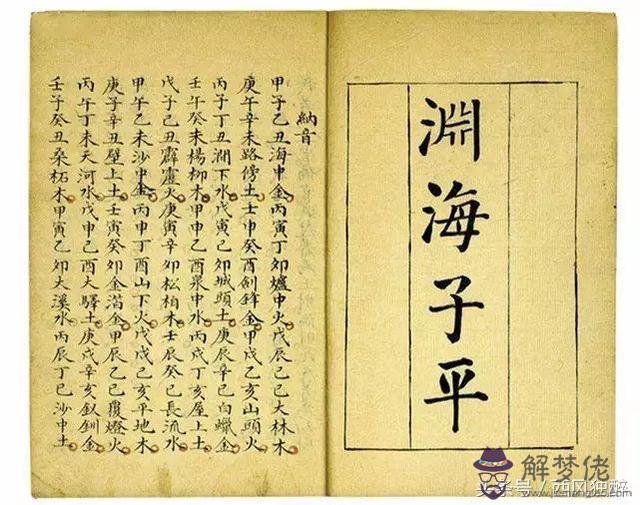 淵海子平
納音
甲子乙丑海中金丙寅丁卯爐中火戊辰己巳大林木
庚午辛未路傍土壬申癸酉劍鋒金甲戌乙亥山頭火
丙子丁丑澗下水戊寅己卯城頭土庚辰辛巳白蠟金
壬午癸未楊柳木甲申乙酉泉中水丙戌丁亥屋上土
戊子己丑霹靂火庚寅辛卯松柏木壬辰癸巳長流水
甲午乙未沙中金丙申丁酉山下火戊戌己亥平地木
庚子辛丑壁上土壬寅癸卯金金甲辰乙巳覆燈火
丙午丁未天河水戊申己酉大驛土庚戌辛亥釵釧金
壬子癸丑桑柘木甲寅乙卯大溪水丙辰丁巳沙中土
解梦佬
头条号/西风独醉